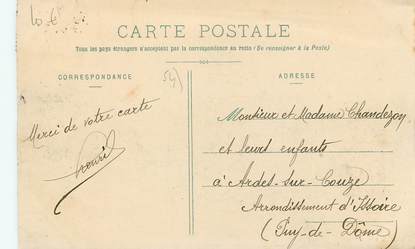 10 €
CARTE POSTALE
Tous les pays étrangers n'acceptent pas la correspondance au recto (Se renseigner à la Poste)
CORRESPONDANCE
ADRESSE
Merci de votre carte
Monsieur et Madame Chandezon
et leurs enfants
à Ardes-sur-Couze
Arrondissement d'Issoire
(Puy-de-Dôme)